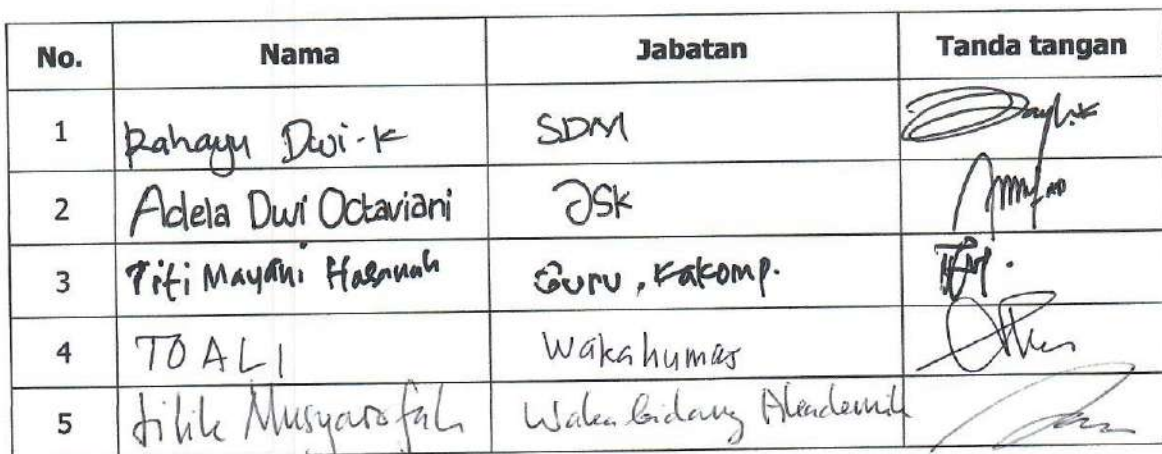 No. Nama Jabatan Tanda tangan
1 Rahayu Dwi-K SDM
2 Adela Dwi Octaviani JSK
3 Titi Mayani Hasanah Guru, Kakomp.
4 TOALI Wakahumas
5 Lilik Musyarofah Waka bidang Akademik